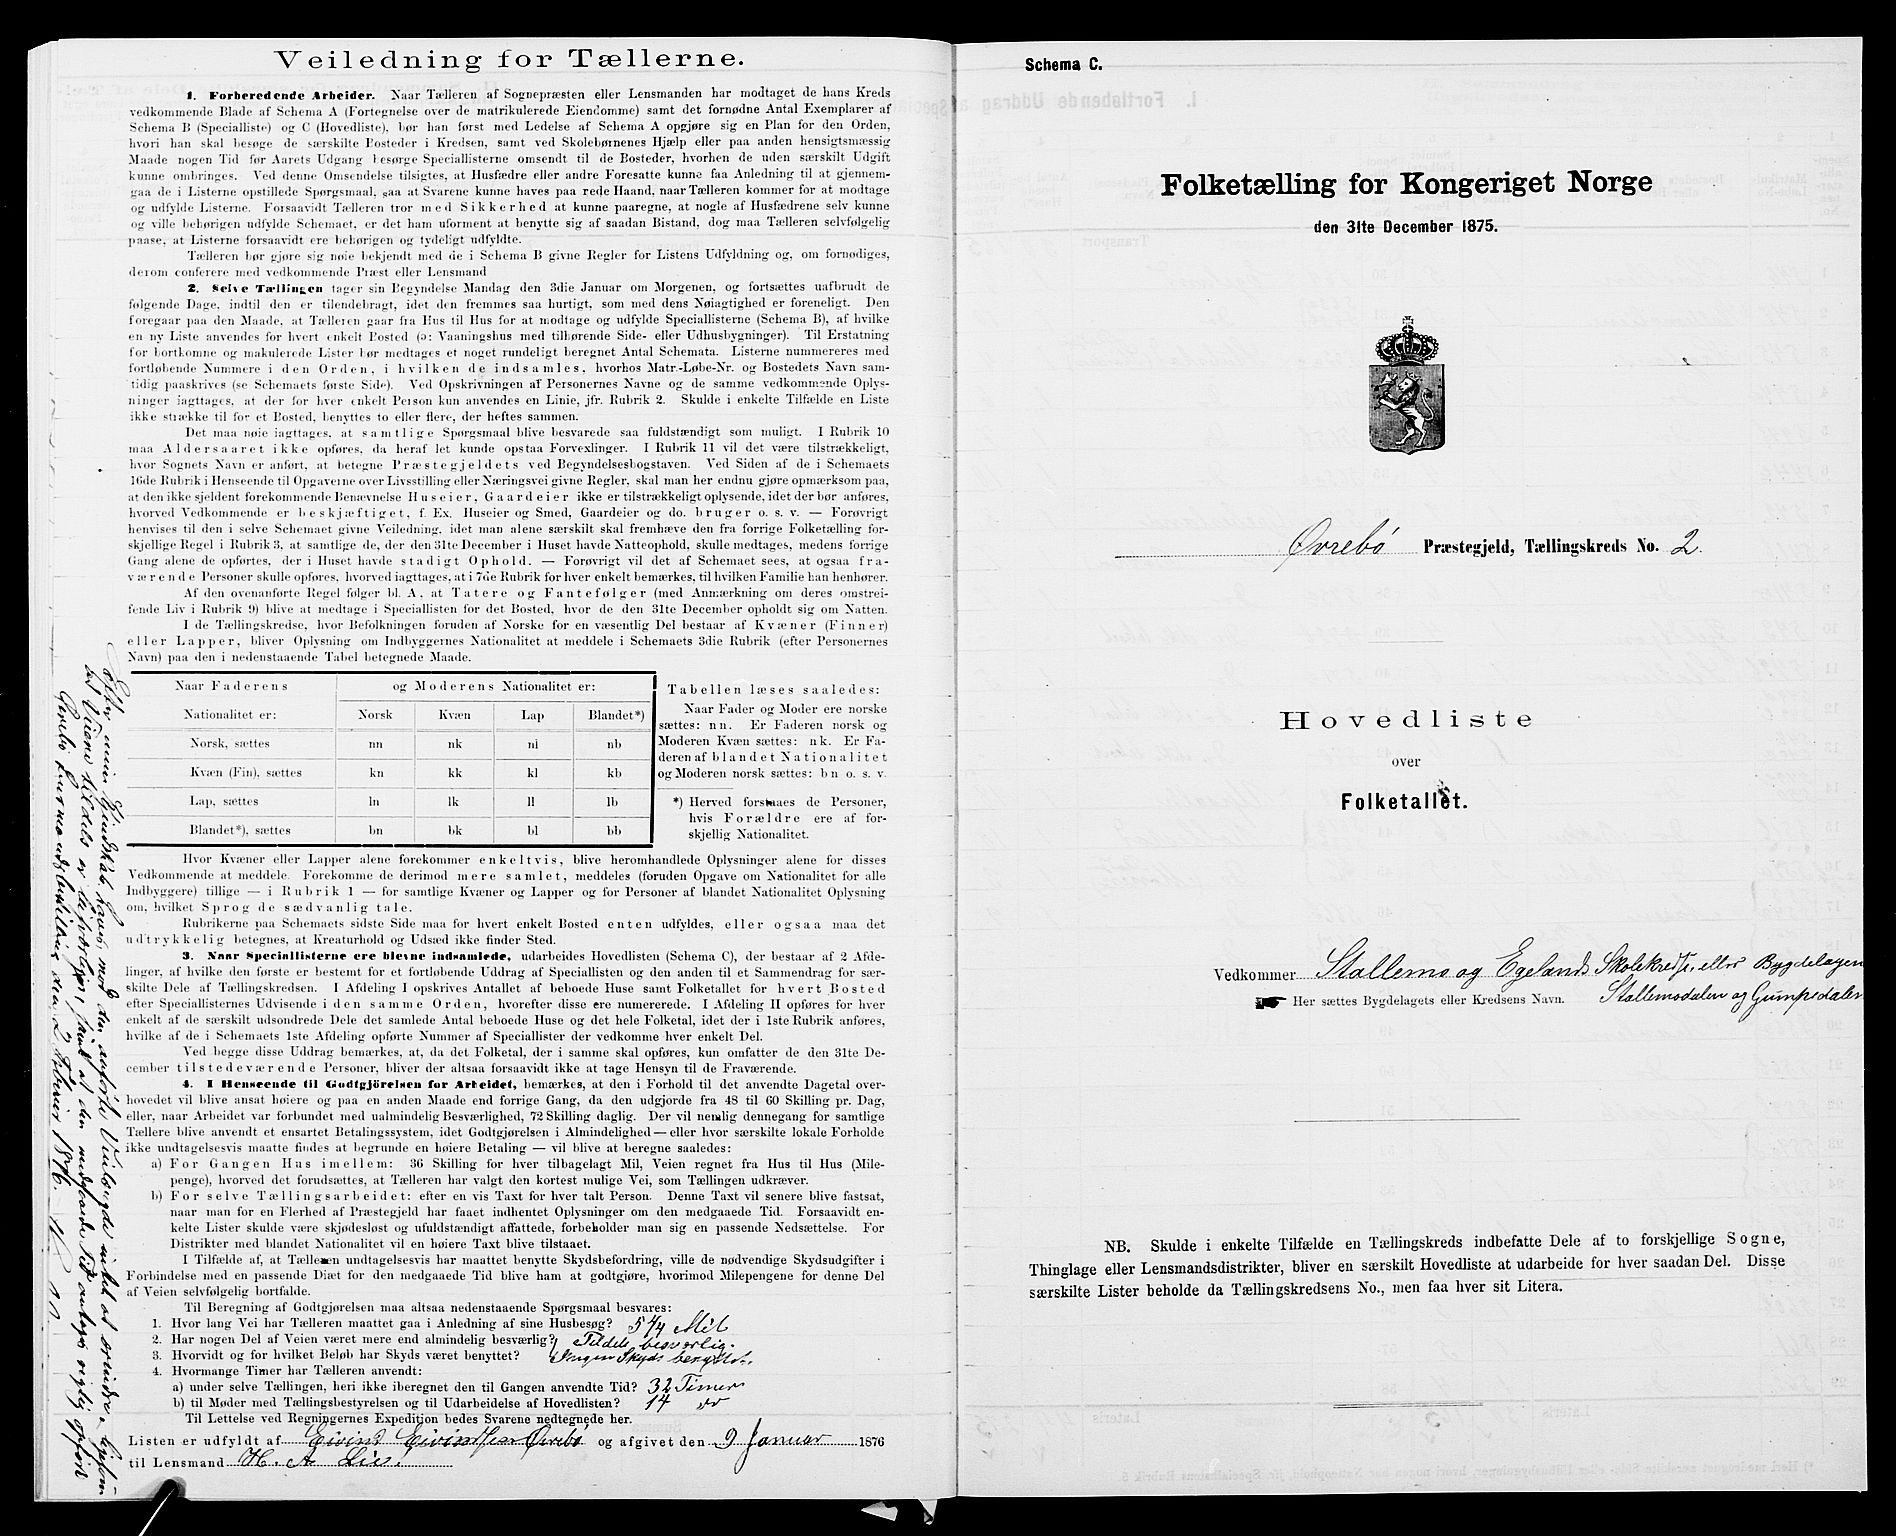 Veiledning for Tællerne.
1. Forberedende Arbeider. Naar Tælleren af Sognepræsten eller Lensmanden har modtaget de hans Kreds
vedkommende Blade af Schema A (Fortegnelse over de matrikulerede Eiendomme) samt det fornødne Antal Exemplarer af
Schema B (Specialliste) og C (Hovedliste), bør han først med Ledelse af Schema A opgjøre sig en Plan for den Orden,
hvori han skal besøge de særskilte Bosteder i Kredsen, samt ved Skolebørnenes Hjælp eller paa anden hensigtsmæssig
Maade nogen Tid før Aarets Udgang besørge Speciallisterne omsendt til de Bosteder, hvorhen de uden særskilt Udgift
kunne ombringes. Ved denne Omsendelse tilsigtes, at Husfædre eller andre Foresatte kunne faa Anledning til at gjennem-
gaa de i Listerne opstillede Spørgsmaal, saa at Svarene kunne haves paa rede Haand, naar Tælleren kommer for at modtage
og udfylde Listerne. Forsaavidt Tælleren tror med Sikkerhed at kunne paaregne, at nogle af Husfædrene selv kunne
og ville behørigen udfylde Schemaet, er det ham uforment at benytte sig af saadan Bistand, dog maa Tælleren selvfølgelig
paase, at Listerne forsaavidt ere behørigen og tydeligt udfyldte.
Tælleren bør gjøre sig nøie bekjendt med de i Schema B givne Regler for Listens Udfyldning og, om fornødiges,
derom conferere med vedkommende Præst eller Lensmand
2. Selve Tællingen tager sin Begyndelse Mandag den 3die Januar om Morgenen, og fortsættes uafbrudt de
følgende Dage, indtil den er tilendebragt, idet den fremmes saa hurtigt, som med dens Nøiagtighed er foreneligt. Den
foregaar paa den Maade, at Tælleren gaar fra Hus til Hus for at modtage og udfylde Speciallisterne (Schema B), af hvilke
en ny Liste anvendes for hvert enkelt Bosted (ɔ: Vaaningshus med tilhørende Side- eller Udhusbygninger). Til Erstatning
for bortkomne og makulerede Lister bør medtages et noget rundeligt beregnet Antal Schemata. Listerne nummereres med
fortløbende Nummere i den Orden, i hvilken de indsamles, hvorhos Matr.-Løbe-Nr. og Bostedets Navn sam-
tidig paaskrives (se Schemaets første Side). Ved Opskrivningen af Personernes Navne og de samme vedkommende Oplys-
ninger iagttages, at der for hver enkelt Person kun anvendes en Linie, jfr. Rubrik 2. Skulde i enkelte Tilfælde en Liste
ikke strække til for et Bosted, benyttes to eller flere, der heftes sammen.
Det maa nøie iagttages, at samtlige Spørgsmaal blive besvarede saa fuldstændigt som muligt. I Rubrik 10
maa Aldersaaret ikke opføres, da heraf let kunde opstaa Forvexlinger. I Rubrik 11 vil det være tilstrækkeligt,
hvor Sognets Navn er anført, at betegne Præstegjeldets ved Begyndelsesbogstaven. Ved Siden af de i Schemaets
16de Rubrik i Henseende til Opgaverne over Livsstilling eller Næringsvei givne Regler, skal man her endnu gjøre opmærksom paa,
at den ikke sjeldent forekommende Benævnelse Huseier, Gaardeier ikke er tilstrækkeligt oplysende, idet der bør anføres,
hvorved Vedkommende er beskjæftiget, f. Ex. Huseier og Smed, Gaardeier og do. bruger o. s. v. — Forøvrigt
henvises til den i selve Schemaet givne Veiledning, idet man alene særskilt skal fremhæve den fra forrige Folketælling for-
skjellige Regel i Rubrik 3, at samtlige de, der den 31te December i Huset havde Natteophold, skulle medtages, medens forrige
Gang alene de opførtes, der i Huset havde stadigt Ophold. — Forøvrigt vil det af Schemaet sees, at ogsaa fra-
værende Personer skulle opføres, hvorved iagttages, at i 7de Rubrik for hver enkelt bemærkes, til hvilken Familie han henhører.
Af den ovenanførte Regel følger bl. A, at Tatere og Fantefølger (med Anmærkning om deres omstrei-
fende Liv i Rubrik 9) blive at medtage i Speciallisten for det Bosted, hvor de den 31te December opholdt sig om Natten.
I de Tællingskredse, hvor Befolkningen foruden af Norske for en væsentlig Del bestaar af Kvæner (Finner)
eller Lapper, bliver Oplysning om Indbyggernes Nationalitet at meddele i Schemaets 3die Rubrik (efter Personernes
Navn) paa den i nedenstaaende Tabel betegnede Maade.
Naar Faderens og Moderens Nationalitet er:
Nationalitet er: Norsk Kvæn Lap Blandet*)
Norsk, sættes nn nk nl nb
Kvæn (Fin), sættes kn kk kl kb
Lap, sættes ln lk ll lb
Blandet*), sættes bn bk bl bb
Tabellen læses saaledes:
Naar Fader og Moder ere norske
sættes: nn. Er Faderen norsk og
Moderen Kvæn sættes: nk. Er Fa-
deren af blandet Nationalitet
og Moderen norsk sættes: bn o. s. v.
*) Herved forstaaes de Personer,
hvis Forældre ere af for-
skjellig Nationalitet.
Hvor Kvæner eller Lapper alene forekommer enkeltvis, blive heromhandlede Oplysninger alene for disses
Vedkommende at meddele. Forekomme de derimod mere samlet, meddeles (foruden Opgave om Nationalitet for alle
Indbyggere) tillige — i Rubrik 1 — for samtlige Kvæner og Lapper og for Personer af blandet Nationalitet Oplysning
om, hvilket Sprog de sædvanlig tale.
Rubrikerne paa Schemaets sidste Side maa for hvert enkelt Bosted enten udfyldes, eller ogsaa maa det
udtrykkelig betegnes, at Kreaturhold og Udsæd ikke finder Sted.
3. Naar Speciallisterne ere blevne indsamlede, udarbeides Hovedlisten (Schema C), der bestaar af 2 Afde-
linger, af hvilke den første er bestemt for et fortløbende Uddrag af Speciallisten og den anden til et Sammendrag for sær-
skilte Dele af Tællingskredsen. I Afdeling I opskrives Antallet af beboede Huse samt Folketallet for hvert Bosted
efter Speciallisternes Udvisende i den samme Orden, hvorefter disse ere numererede. I Afdeling II opføres for hver
enkelt af de særskilt udsondrede Dele det samlede Antal beboede Huse og det hele Folketal, idet der i 1ste Rubrik anføres,
hvilke af de i Schemaets 1ste Afdeling opførte Nummer af Speciallister der vedkomme hver enkelt Del.
Ved begge disse Uddrag bemærkes, at, da det Folketal, der i samme skal opføres, kun omfatter de den 31te De-
cember tilstedeværende Personer, bliver der altsaa forsaavidt ikke at tage Hensyn til de Fraværende.
4. I Henseende til Godtgjörelsen for Arbeidet, bemærkes, at den i Forhold til det anvendte Dagetal over-
hovedet vil blive ansat høiere og paa en anden Maade end forrige Gang, da den udgjorde fra 48 til 60 Skilling pr. Dag,
eller, naar Arbeidet var forbundet med ualmindelig Besværlighed, 72 Skilling daglig. Der vil nemlig dennegang for samtlige
Tællere blive anvendt et ensartet Betalingssystem, idet Godtgjørelsen i Almindelighed — eller hvor særskilte lokale Forholde
ikke undtagelsesvis maatte findes at begrunde en høiere Betaling — vil blive at beregne saaledes:
a) For Gangen Hus imellem: 36 Skilling for hver tilbagelagt Mil, Veien regnet fra Hus til Hus (Mile-
penge), hvorved det forudsættes, at Tælleren har valgt den kortest mulige Vei, som Tællingen udkræver.
b) For selve Tællingsarbeidet: efter en vis Taxt for hver talt Person. Denne Taxt vil senere blive fastsat,
naar man for en Flerhed af Præstegjeld har faaet indhentet Oplysninger om den medgaaede Tid. Forsaavidt en-
kelte Lister skulde være skjødesløst og ufuldstændigt affattede, forbeholder man sig en passende Nedsættelse. For
Distrikter med blandet Nationalitet vil en høiere Taxt blive tilstaaet.
I Tilfælde af, at Tælleren undtagelsesvis har maattet benytte Skydsbefordring, ville de nødvendige Skydsudgifter i
Forbindelse med en passende Diæt for den medgaaede Tid blive ham at godtgjøre, hvorimod Milepengene for denne Del
af Veien selvfølgelig bortfalde.
Til Beregning af Godtgjørelsen maa altsaa nedenstaaende Spørgsmaal besvares:
1. Hvor lang Vei har Tælleren maattet gaa i Anledning af sine Husbesøg? 5 4/4 Mil
2. Har nogen Del af Veien været mere end almindelig besværlig? Tildels besverlig.
3. Hvorvidt og for hvilket Beløb har Skyds været benyttet? Ingen Skyds benyttet.
4. Hvormange Timer har Tælleren anvendt:
a) under selve Tællingen, heri ikke iberegnet den til Gangen anvendte Tid? 32 Timer
b) til Møder med Tællingsbestyrelsen og til Udarbeidelse af Hovedlisten? 14 do
Til Lettelse ved Regningernes Expedition bedes Svarene nedtegnede her.
Listen er udfyldt af Eivind Eivindsen Øvrebö og afgivet den 9 Januar 1876
til Lensmand H. A. Lie.
Efter min Kjendskab haves mod den anførte Veilængde intet at erindre, ligesom
ved Veiene tildels er besværlige, samt at den medgaaede Tid antages rigtig opført
Øvrebø Lensmandsbestilling den 2 Februar 1876.
Schema C.
Folketælling for Kongeriget Norge
den 31te December 1875.
Øvrebö Præstegjeld, Tællingskreds No. 2.
Hovedliste
over
Folketallet.
Vedkommer Stallemo og Egelands Skolekredse eller Bygdelagen
Her sættes Bygdelagets eller Kredsens Navn. Stallemodalen og Gumpedalen
NB. Skulde i enkelte Tilfælde en Tællingskreds indbefatte Dele af to forskjellige Sogne,
Thinglage eller Lensmandsdistrikter, bliver en særskilt Hovedliste at udarbeide for hver saadan Del. Disse
særskilte Lister beholde da Tællingskredsens No., men faa hver sit Litera.